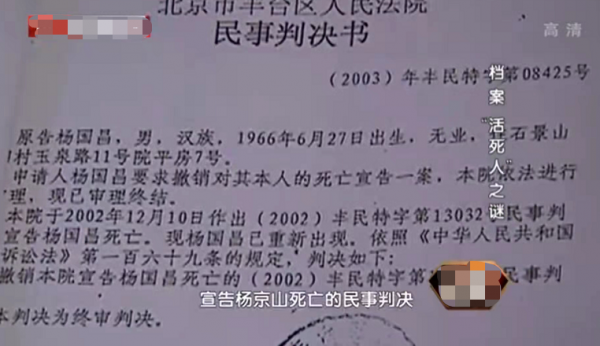 北京市丰台区人民法院
民事判决书
高清
(2003)年丰民特字第08425号
档案“活死人”之谜
原告杨国昌，男，汉族，1966年6月27日出生，无业，石景山
村玉泉路11号院平房7号。
申请人杨国昌要求撤销对其本人的死亡宣告一案，本院依法进行
理，现已审理终结。
本院于2002年12月10日作出(2002)丰民特字第13032民事判
宣告杨国昌死亡。现杨国昌已重新出现。依照《中华人民共和国
诉讼法》第一百六十九条的规定，判决如下：
撤销本院宣告杨国昌死亡的(2002)丰民特字第
民事判
宣告杨京山死亡的民事判决
本判决为终审判决。